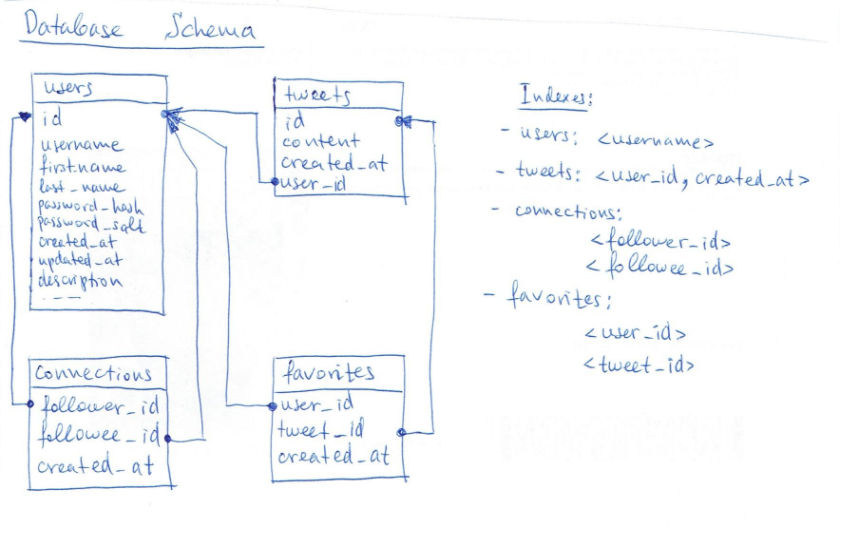 Database Schema
users
id
username
firstname
last_name
password_hash
password_salt
created_at
updated_at
description
----
tweets
id
content
created_at
user_id
connections
follower_id
followee_id
created_at
favorites
user_id
tweet_id
created_at
Indexes:
- users: <username>
- tweets: <user_id, created_at>
- connections:
<follower_id>
<followee_id>
- favorites:
<user_id>
<tweet_id>